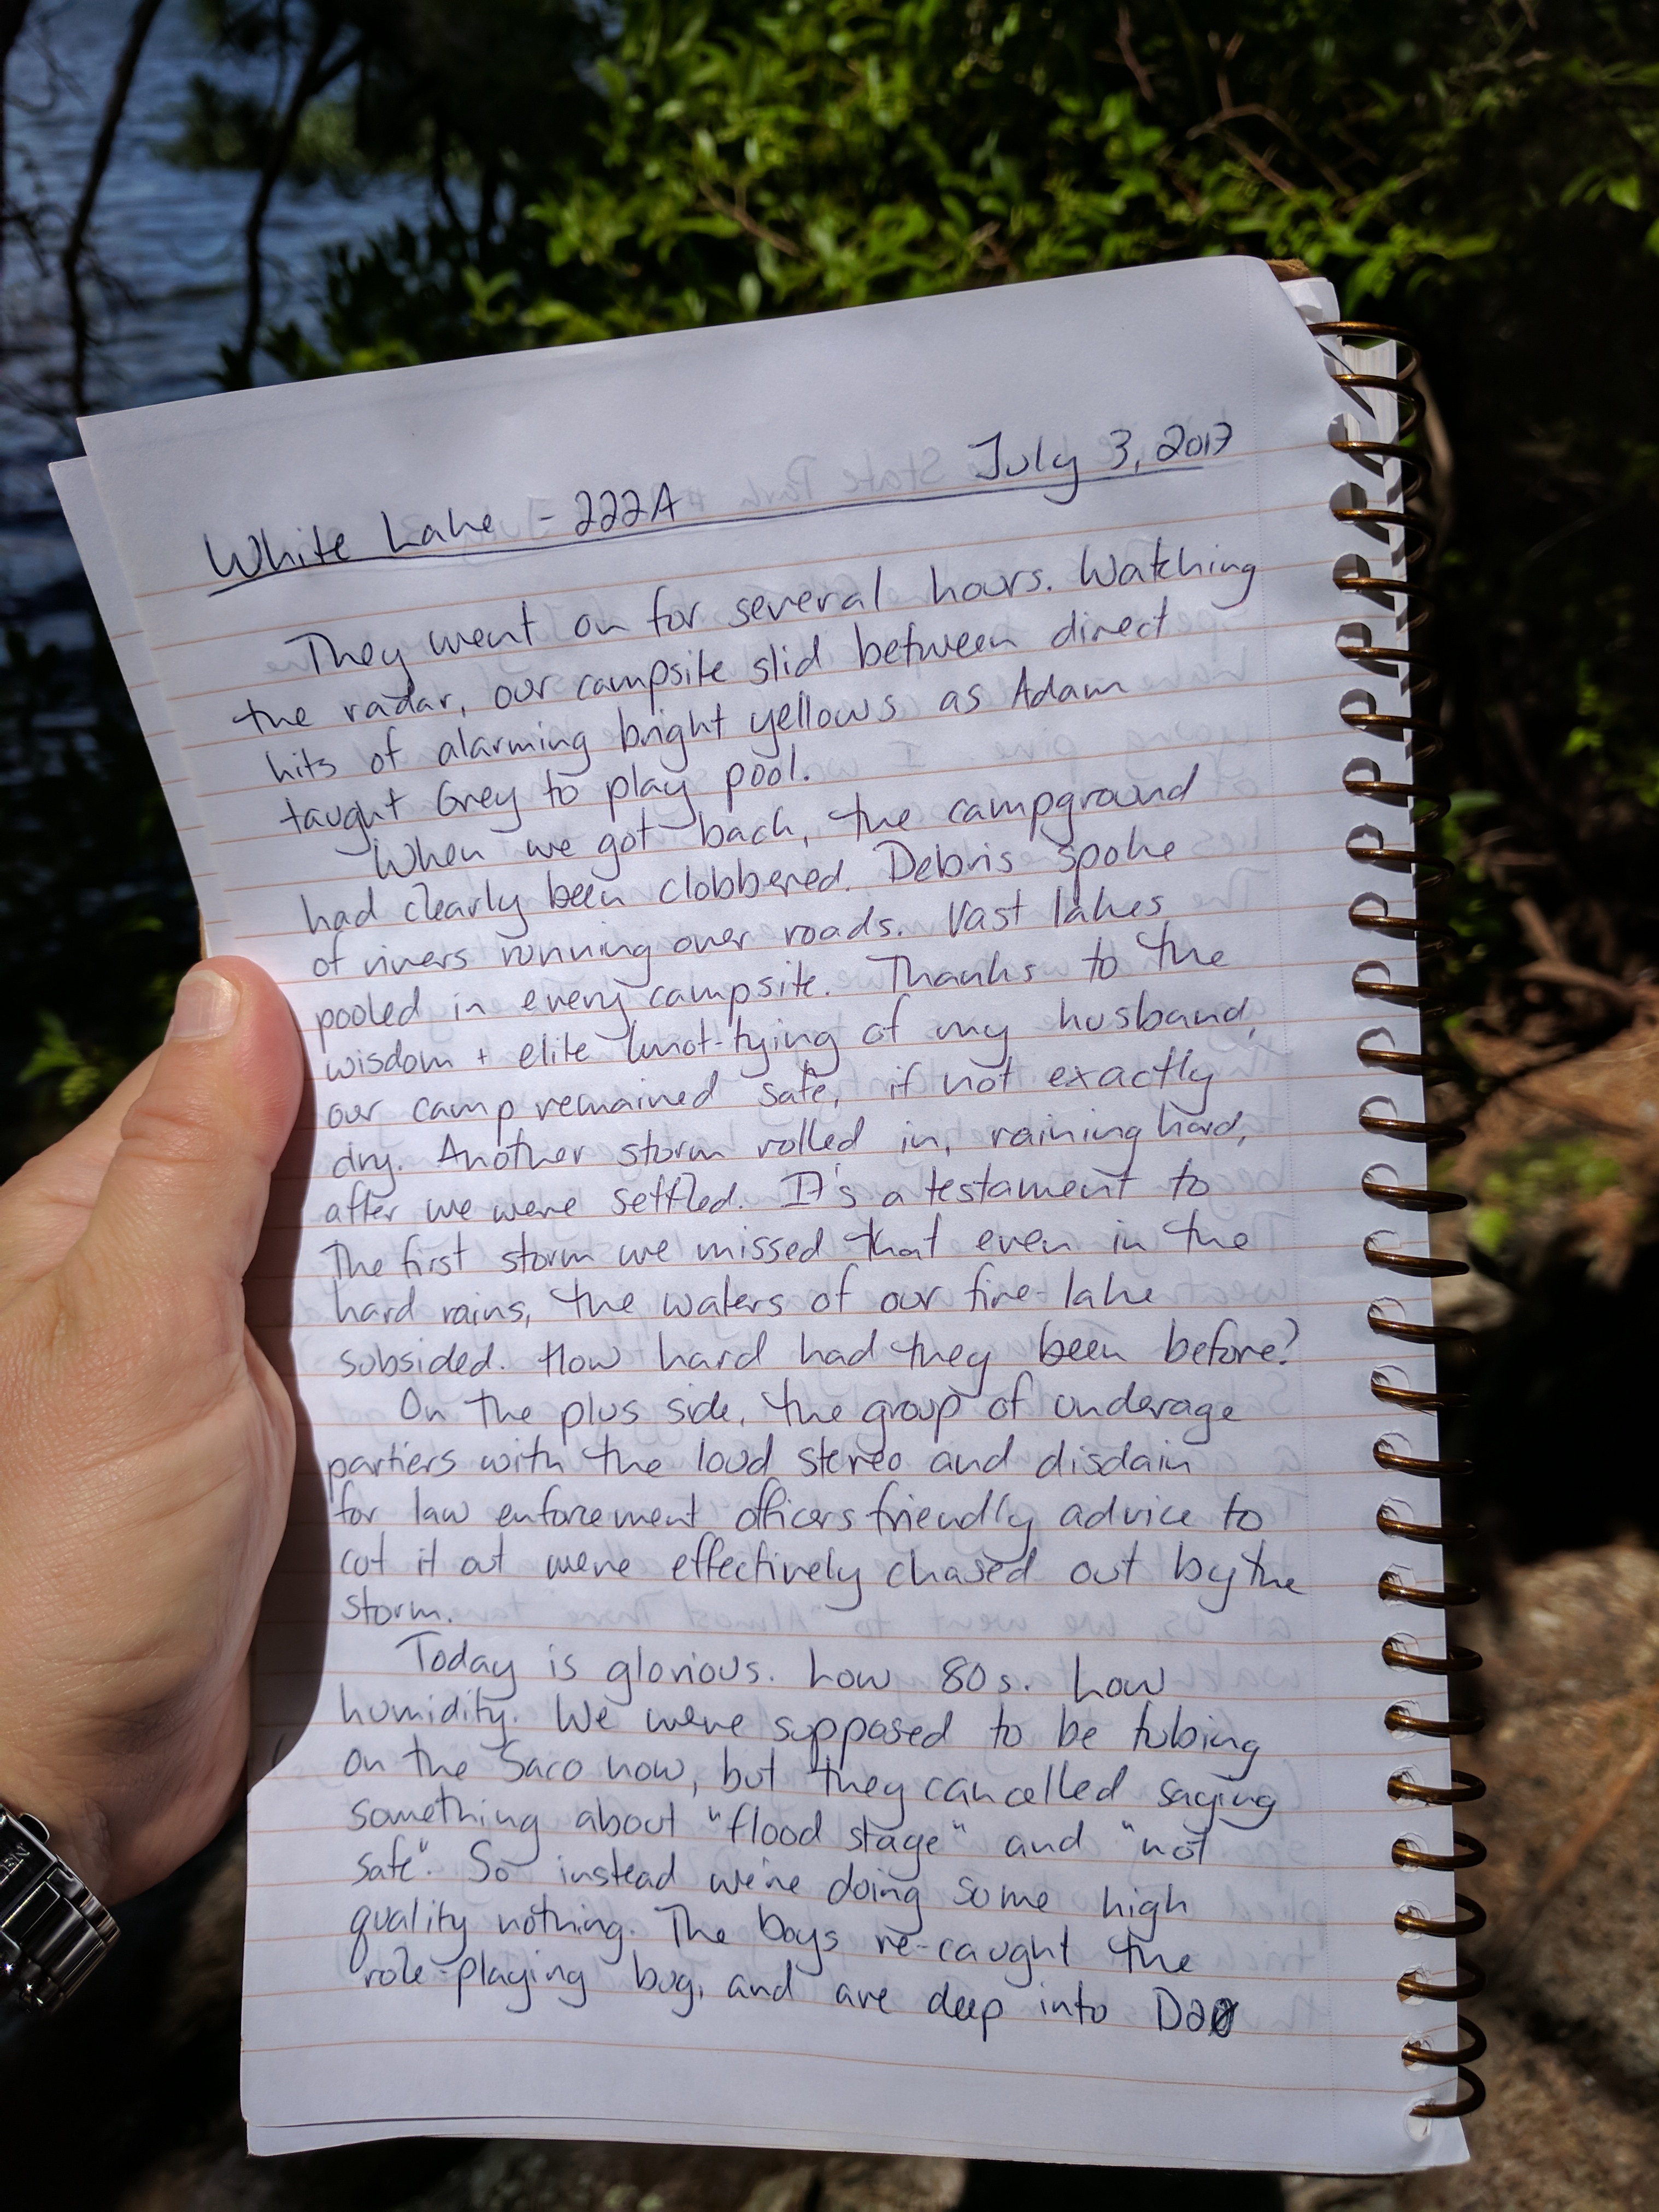 White Lake - 222A July 3, 2017
They went on for several hours. Watching
the radar, our campsite slid between direct
hits of alarming bright yellows as Adam
taught Grey to play pool.
When we got back, the campground
had clearly been clobbered. Debris spoke
of rivers running over roads. Vast lakes
pooled in every campsite. Thanks to the
wisdom + elite knot-tying of my husband,
our camp remained safe, if not exactly
dry. Another storm rolled in, raining hard,
after we were settled. It's a testament to
the first storm we missed that even in the
hard rains, the waters of our fire-lake
subsided. How hard had they been before?
On the plus side, the group of underage
partiers with the loud stereo and disdain
for law enforcement officers friendly advice to
cut it out were effectively chased out by the
storm.
Today is glorious. Low 80s. Low
humidity. We were supposed to be tubing
on the Saco now, but they cancelled saying
something about "flood stage" and "not
safe". So instead we're doing some high
quality nothing. The boys re-caught the
role-playing bug, and are deep into